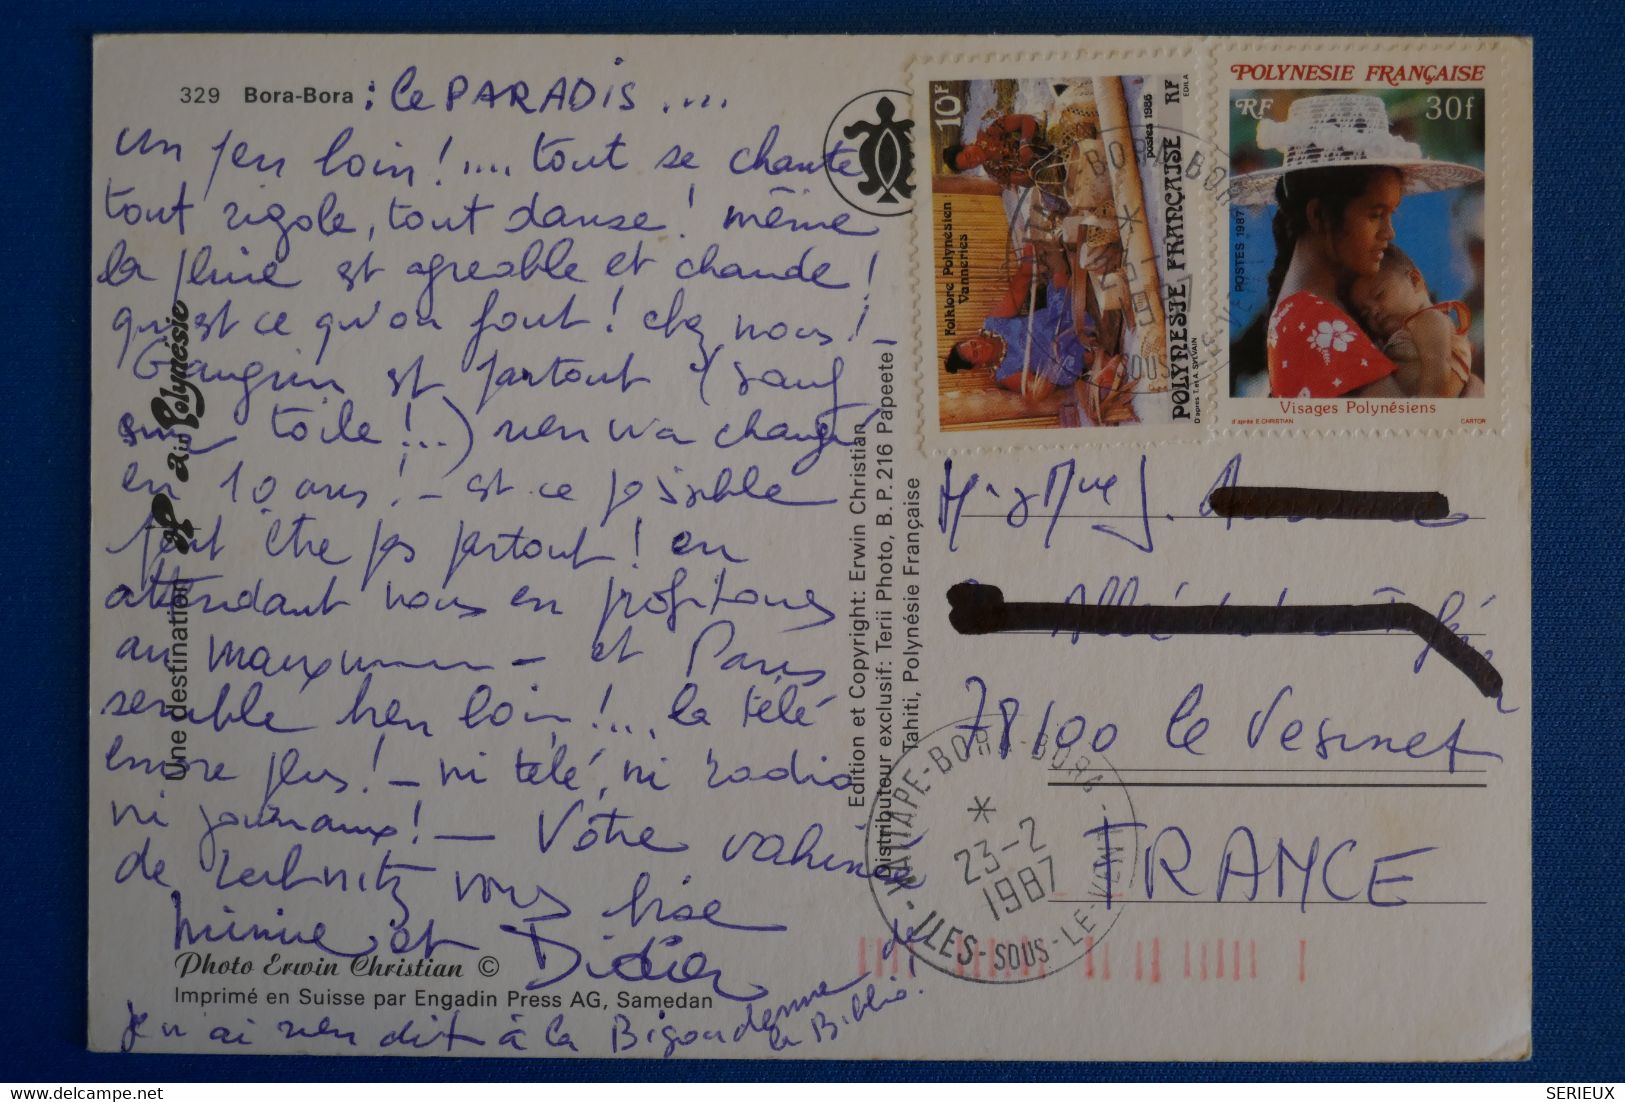 329 Bora-Bora : le PARADIS ....
un peu loin !.... tout se chante
tout rigole, tout danse ! même
la pluie est agréable et chaude !
qu'est ce qu'on fout ! chez nous !
Gauguin est partout (sauf
sur toile !...) rien n'a changé
en 10 ans ! - est ce possible
peut être pas partout ! en
attendant nous en profitons
au maximum - et Paris
semble bien loin !... la télé
encore plus ! - ni télé, ni radio
ni journaux ! - Votre vahinée
de vous bise
Minnie et Didier
Photo Erwin Christian ©
Imprimé en Suisse par Engadin Press AG, Samedan
Je n'ai rien dit à la Bigoudenne de
la Biblio !
Une destination air Polynésie
Edition et Copyright: Erwin Christian
Distributeur exclusif: Terii Photo, B.P. 216 Papeete
Tahiti, Polynésie Française
10F
Folklore Polynésien
Vanneries
postes 1986
RF
EDILA
POLYNESIE FRANÇAISE
D'après T. et A. SYLVAIN
POLYNESIE FRANÇAISE
RF
30f
POSTES 1987
Visages Polynésiens
d'après E. CHRISTIAN
CARTOR
Mr & Mme J.
Allée
78100 le Vesinet
FRANCE
VAITAPE-BORA-BORA
*
23-2
1987
ILES-SOUS-LE-VENT
SERIEUX